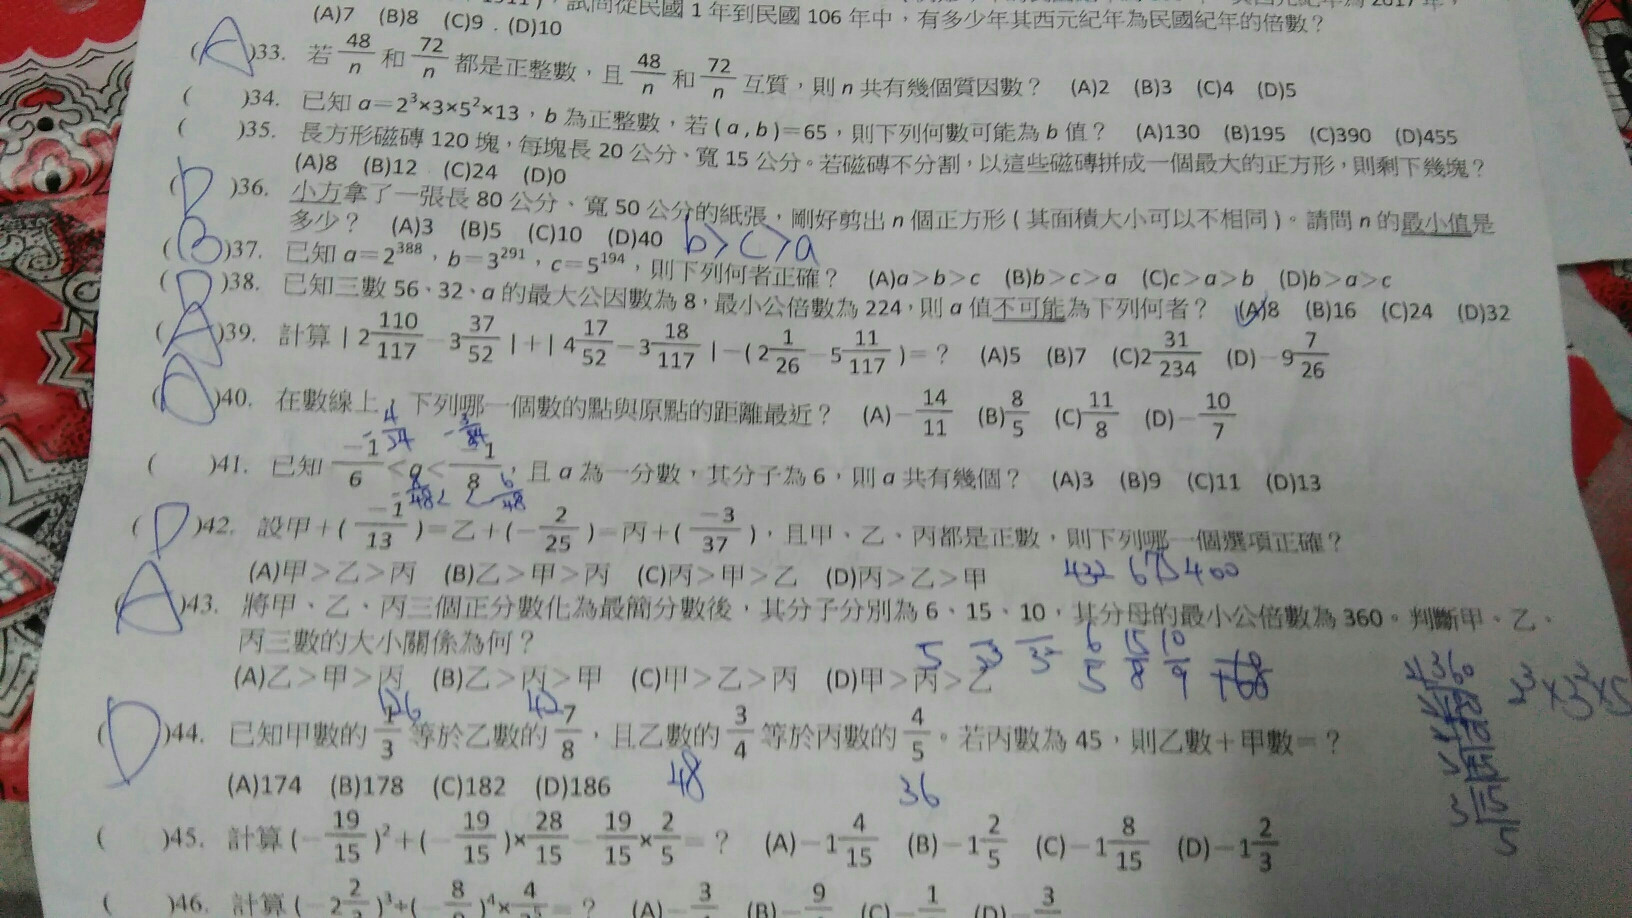 1911)，試問從民國 1 年到民國 106 年中，有多少年其西元紀年為民國紀年的倍數？
(A)7 (B)8 (C)9 (D)10
(A)33. 若 48/n 和 72/n 都是正整數，且 48/n 和 72/n 互質，則 n 共有幾個質因數？ (A)2 (B)3 (C)4 (D)5
( )34. 已知 a＝2³×3×5²×13，b 為正整數，若 (a , b)＝65，則下列何數可能為 b 值？ (A)130 (B)195 (C)390 (D)455
( )35. 長方形磁磚 120 塊，每塊長 20 公分、寬 15 公分。若磁磚不分割，以這些磁磚拼成一個最大的正方形，則剩下幾塊？
(A)8 (B)12 (C)24 (D)0
(D)36. 小方拿了一張長 80 公分、寬 50 公分的紙張，剛好剪出 n 個正方形 ( 其面積大小可以不相同 )。請問 n 的最小值是
多少？ (A)3 (B)5 (C)10 (D)40 b>c>a
(B)37. 已知 a＝2³⁸⁸，b＝3²⁹¹，c＝5¹⁹⁴，則下列何者正確？ (A)a＞b＞c (B)b＞c＞a (C)c＞a＞b (D)b＞a＞c
(D)38. 已知三數 56、32、a 的最大公因數為 8，最小公倍數為 224，則 a 值不可能為下列何者？ (A)8 (B)16 (C)24 (D)32
(A)39. 計算 | 2 110/117 − 3 37/52 | + | 4 17/52 − 3 18/117 | − ( 2 1/26 − 5 11/117 )＝？ (A)5 (B)7 (C)2 31/234 (D)−9 7/26
( )40. 在數線上，下列哪一個數的點與原點的距離最近？ (A)−14/11 (B)8/5 (C)11/8 (D)−10/7
-4/24 -3/24
( )41. 已知 −1/6 ＜a＜ −1/8，且 a 為一分數，其分子為 6，則 a 共有幾個？ (A)3 (B)9 (C)11 (D)13
-8/48< <-6/48
(D)42. 設甲＋( −1/13 )＝乙＋(−2/25 )＝丙＋( −3/37 )，且甲、乙、丙都是正數，則下列哪一個選項正確？
(A)甲＞乙＞丙 (B)乙＞甲＞丙 (C)丙＞甲＞乙 (D)丙＞乙＞甲
432 675 400
(A)43. 將甲、乙、丙三個正分數化為最簡分數後，其分子分別為 6、15、10，其分母的最小公倍數為 360。判斷甲、乙、
丙三數的大小關係為何？
5 2³ 3² 6/5 15/8 10/9
(A)乙＞甲＞丙 (B)乙＞丙＞甲 (C)甲＞乙＞丙 (D)甲＞丙＞乙
2 360 2³×3²×5
126 42
(D)44. 已知甲數的 1/3 等於乙數的 7/8，且乙數的 3/4 等於丙數的 4/5。若丙數為 45，則乙數＋甲數＝？
(A)174 (B)178 (C)182 (D)186
48 36
3 15
5
( )45. 計算 (−19/15)²＋(−19/15)×28/15−19/15×2/5＝？ (A)−1 4/15 (B)−1 2/5 (C)−1 8/15 (D)−1 2/3
( )46. 計算